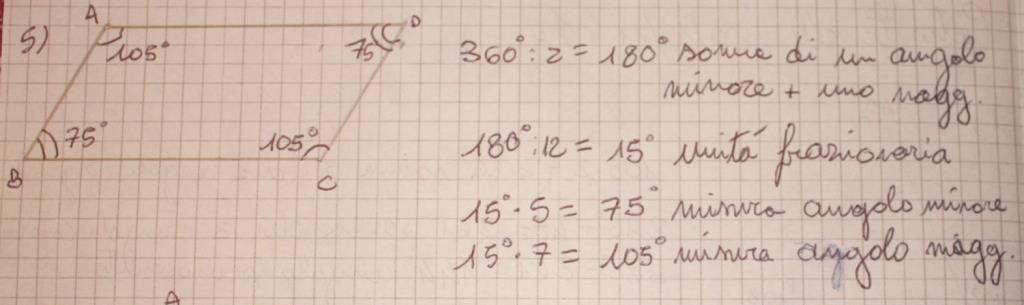 5)
A
D
105°
75°
75°
105°
B
C
360° : 2 = 180° somma di un angolo
minore + uno magg.
180° : 12 = 15° unitá frazionaria
15° · 5 = 75° misura angolo minore
15° · 7 = 105° misura angolo magg.
A